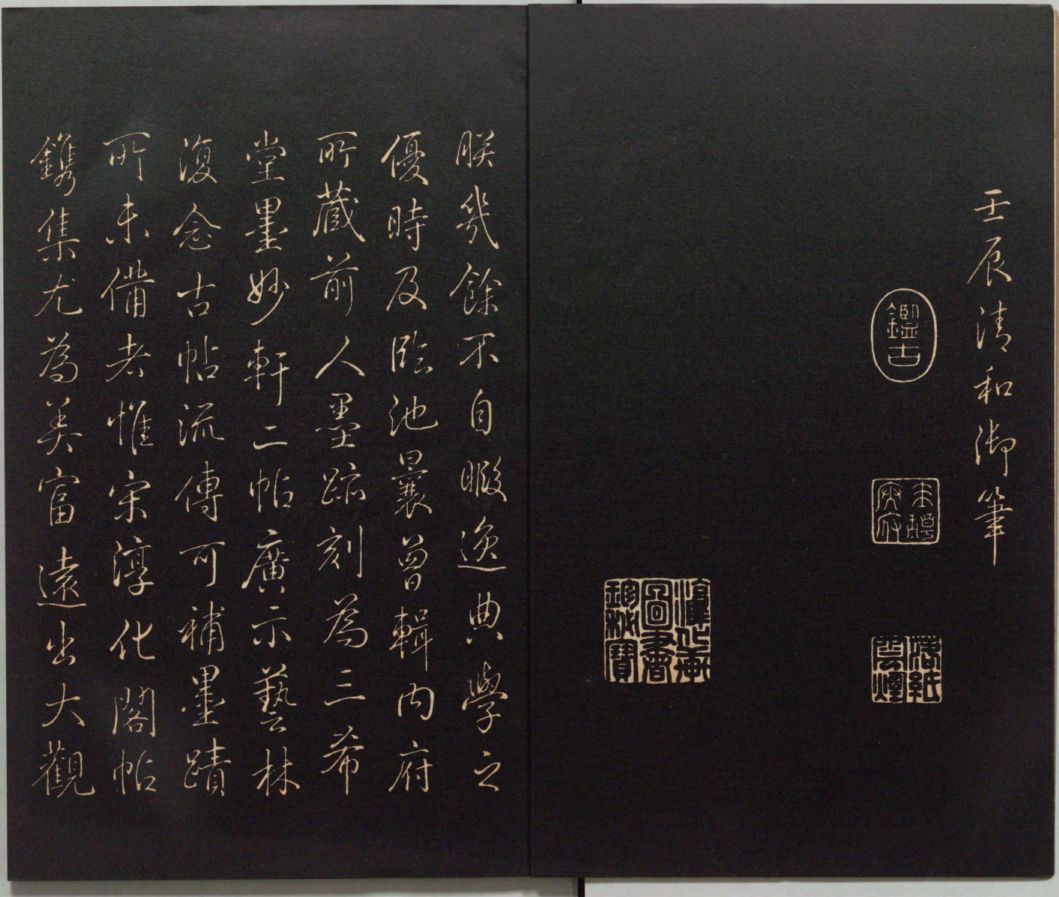 壬辰清和御筆
鑑古
落紙雲煙
淳化軒
圖書
珍秘寶
朕幾餘不自暇逸典學之
優時及臨池曩曾輯內府
所藏前人墨跡刻為三希
堂墨妙軒二帖廣示藝林
復念古帖流傳可補墨蹟
所未備者惟宋淳化閣帖
鐫集尤為美富遠出大觀